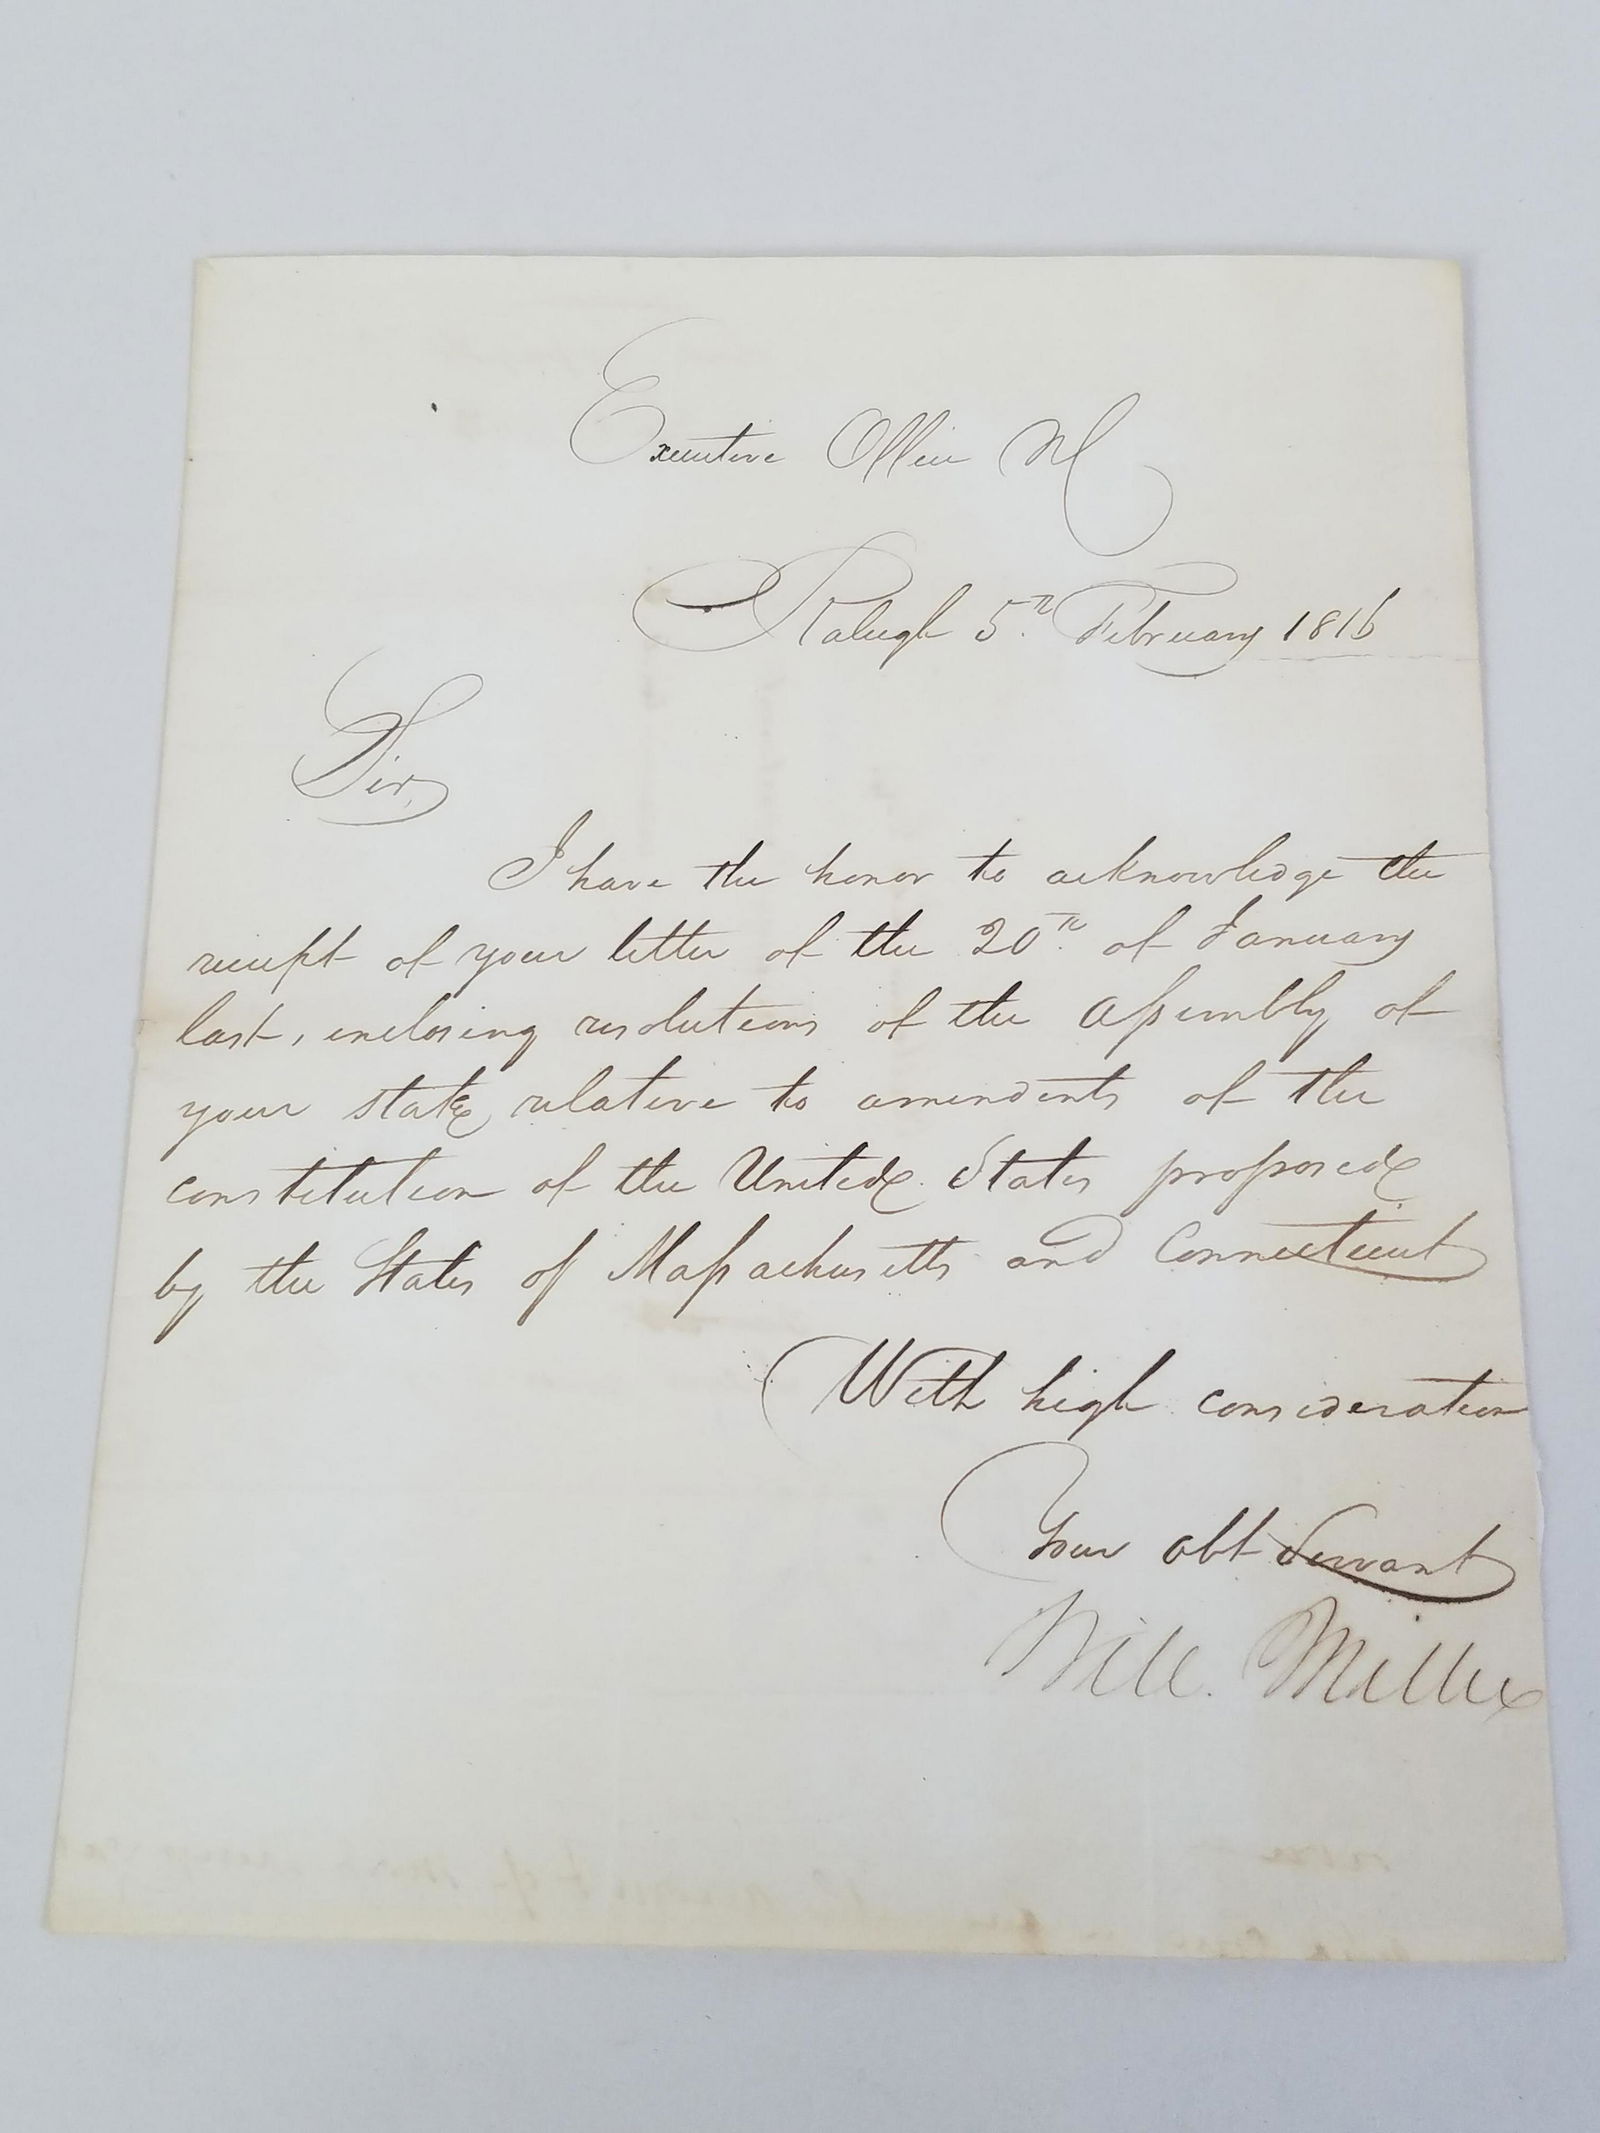 Executive Office NC
Raleigh 5th February 1816
Sir,
I have the honor to acknowledge the
receipt of your letter of the 20th of January
last, inclosing resolutions of the Assembly of
your state relative to amendents of the
constitution of the United States proposed
by the States of Massachusetts and Connecticut
With high consideration
Your obt Servant
Will. Miller